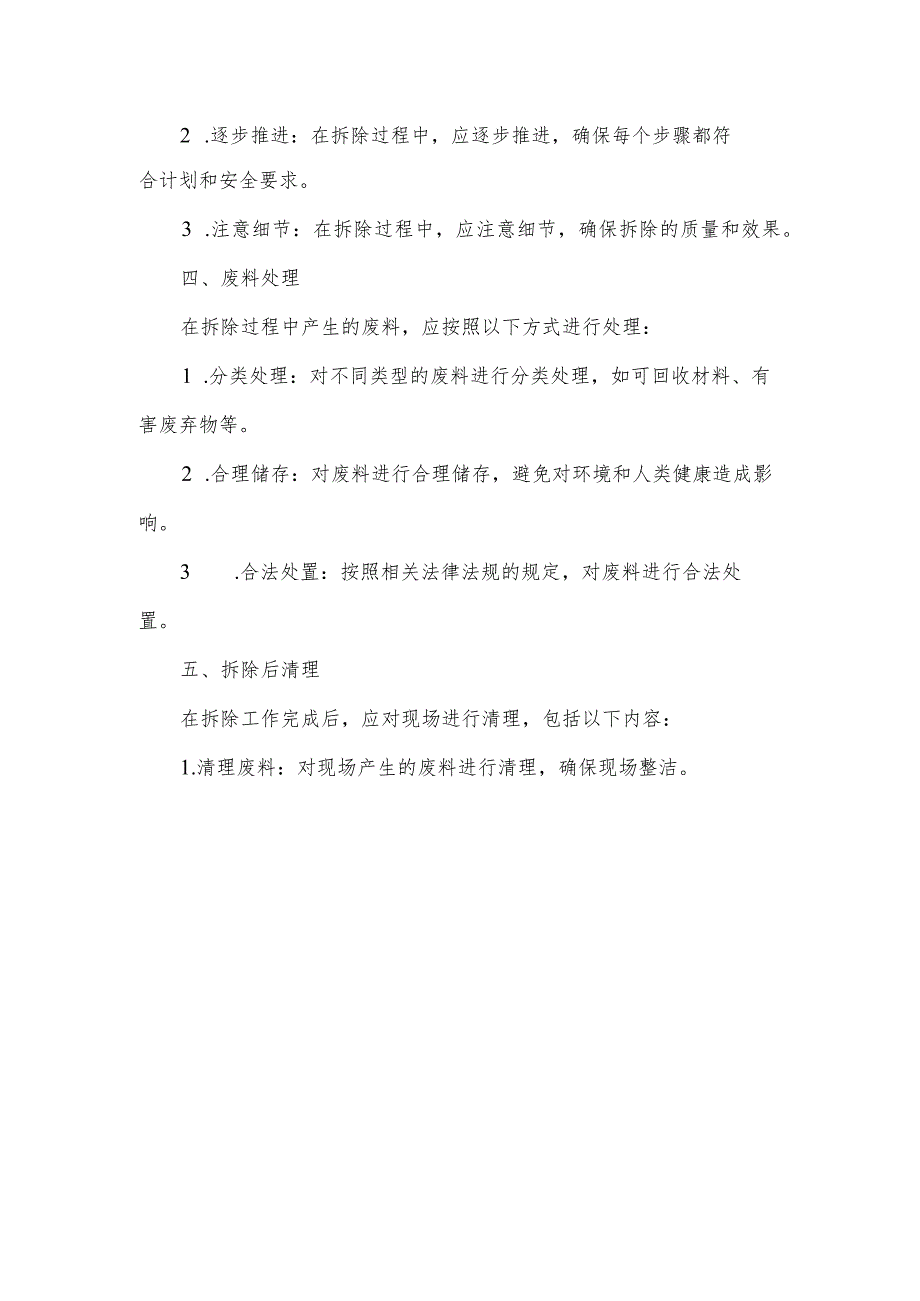 2 .逐步推进：在拆除过程中，应逐步推进，确保每个步骤都符
合计划和安全要求。
3 .注意细节：在拆除过程中，应注意细节，确保拆除的质量和效果。
四、废料处理
在拆除过程中产生的废料，应按照以下方式进行处理：
1 .分类处理：对不同类型的废料进行分类处理，如可回收材料、有
害废弃物等。
2 .合理储存：对废料进行合理储存，避免对环境和人类健康造成影
响。
3 .合法处置：按照相关法律法规的规定，对废料进行合法处
置。
五、拆除后清理
在拆除工作完成后，应对现场进行清理，包括以下内容：
1.清理废料：对现场产生的废料进行清理，确保现场整洁。